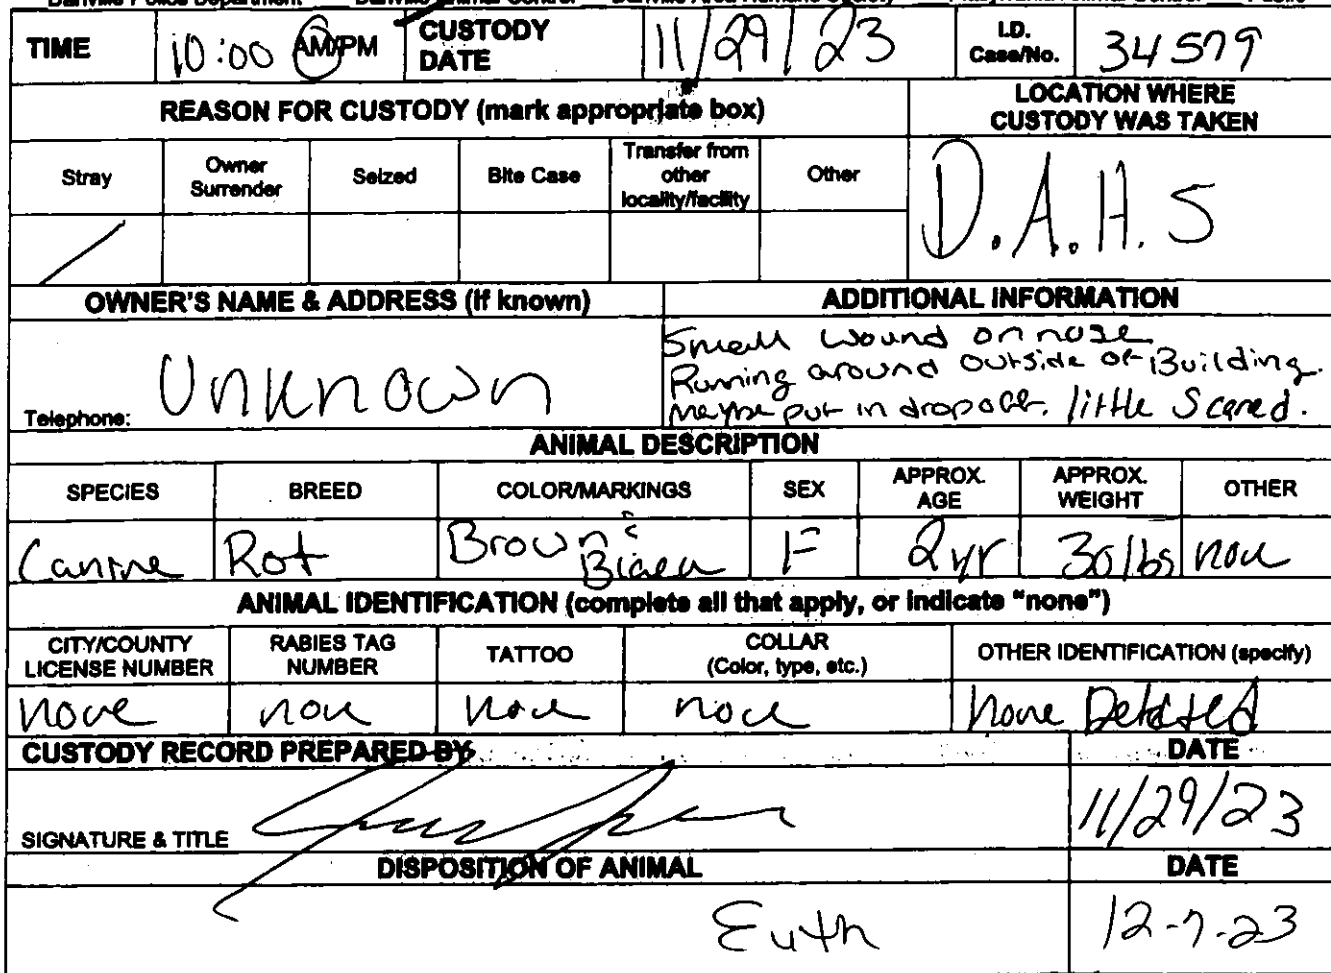 Danville Police Department Danville Animal Control Danville Area Humane Society Pittsylvania Animal Control Public
TIME 10:00 AM/PM CUSTODY DATE 11/29/23 I.D. Case/No. 34579
REASON FOR CUSTODY (mark appropriate box) LOCATION WHERE CUSTODY WAS TAKEN
Stray Owner Surrender Seized Bite Case Transfer from other locality/facility Other
D.A.H.S
OWNER'S NAME & ADDRESS (if known) ADDITIONAL INFORMATION
Small wound on nose
Running around outside of Building.
Maybe put in dropoff. little Scared.
Telephone: Unknown
ANIMAL DESCRIPTION
SPECIES BREED COLOR/MARKINGS SEX APPROX. AGE APPROX. WEIGHT OTHER
Canine Rot Brown & Black F 2yr 30lbs none
ANIMAL IDENTIFICATION (complete all that apply, or indicate "none")
CITY/COUNTY LICENSE NUMBER RABIES TAG NUMBER TATTOO COLLAR (Color, type, etc.) OTHER IDENTIFICATION (specify)
none none none none None Detected
CUSTODY RECORD PREPARED BY DATE
SIGNATURE & TITLE 11/29/23
DISPOSITION OF ANIMAL DATE
Euth 12-7-23